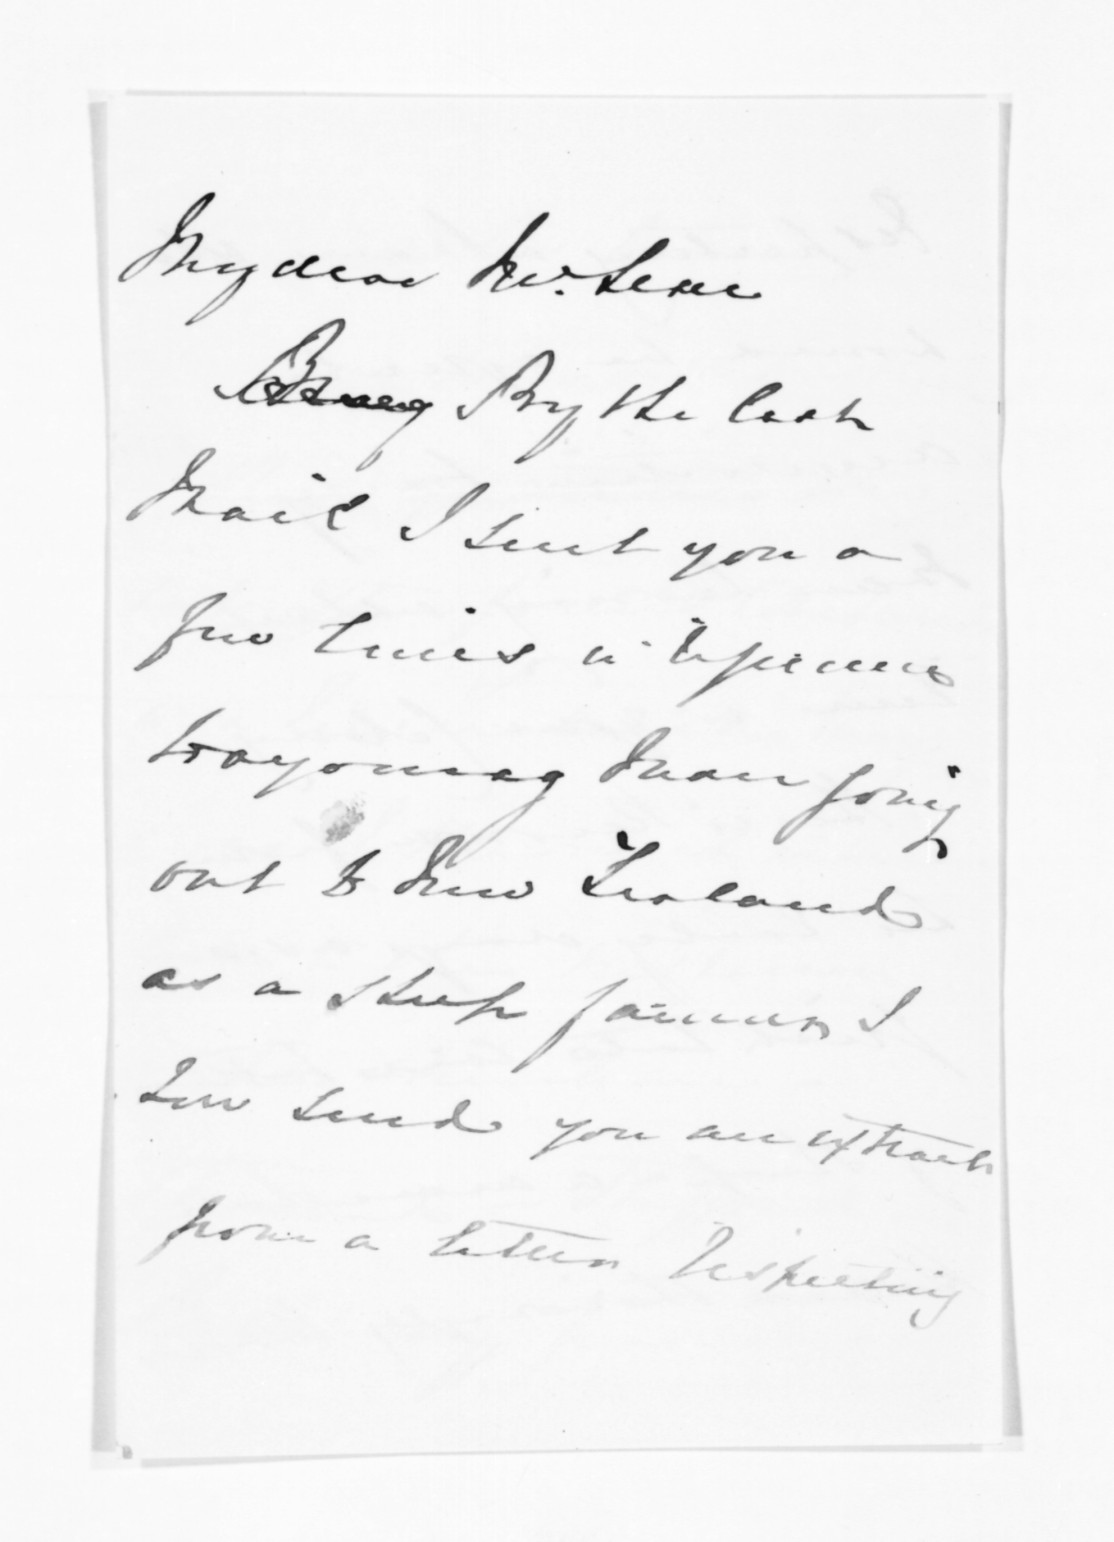 My dear Mr. Lean
By the last
Mail I sent you a
few lines in
to a young Man going
out to New Zealand
as a sheep farmer I
now send you an extract
from a letter respecting